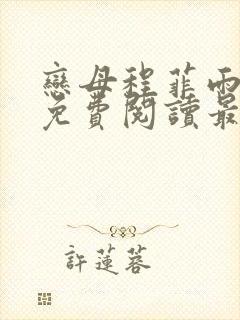 戀母程菲雨
免費閱讀最
許蓮蓉